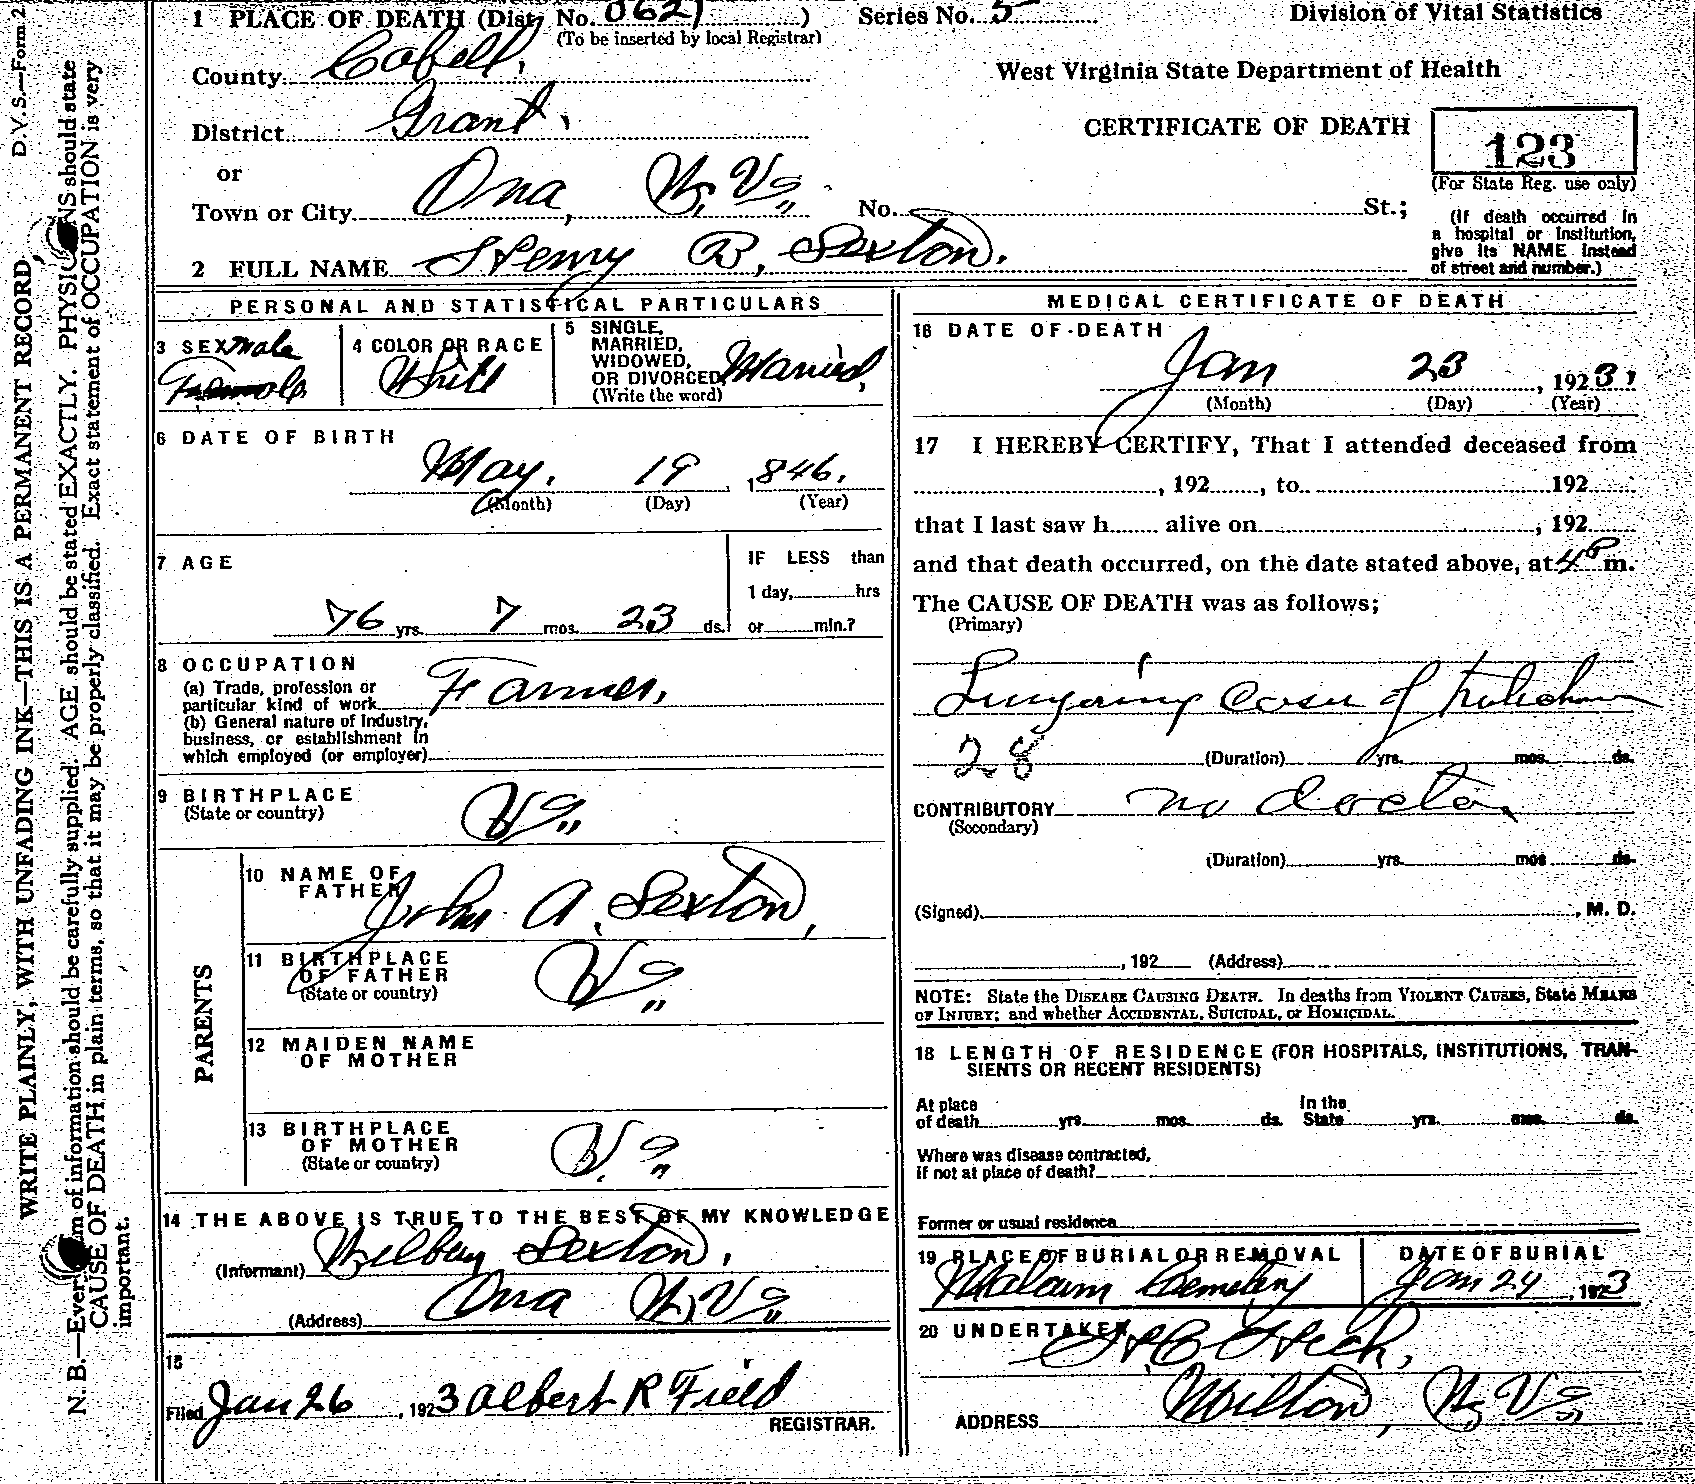 D.V.S.—Form 2
WRITE PLAINLY, WITH UNFADING INK—THIS IS A PERMANENT RECORD,
N. B.—Every item of information should be carefully supplied. AGE should be stated EXACTLY. PHYSICIANS should state
CAUSE OF DEATH in plain terms, so that it may be properly classified. Exact statement of OCCUPATION is very
important.
1 PLACE OF DEATH (Dist. No. 0621 ) Series No. 5 Division of Vital Statistics
(To be inserted by local Registrar)
County Cabell, West Virginia State Department of Health
District Grant, CERTIFICATE OF DEATH 123
or
(For State Reg. use only)
Town or City Ona, W. Va. No. St.;
(If death occurred in
a hospital or institution,
give its NAME instead
of street and number.)
2 FULL NAME Henry B, Sexton.
PERSONAL AND STATISTICAL PARTICULARS
3 SEX Male
Female
4 COLOR OR RACE
White
5 SINGLE,
MARRIED,
WIDOWED,
OR DIVORCED Married,
(Write the word)
6 DATE OF BIRTH
May. 19 , 1846.
(Month) (Day) (Year)
7 AGE
76 yrs. 7 mos. 23 ds.
IF LESS than
1 day, hrs
or min.?
8 OCCUPATION
(a) Trade, profession or
particular kind of work Farmer,
(b) General nature of industry,
business, or establishment in
which employed (or employer)
9 BIRTHPLACE
(State or country) Va.
PARENTS
10 NAME OF
FATHER John A. Sexton,
11 BIRTHPLACE
OF FATHER
(State or country) Va.
12 MAIDEN NAME
OF MOTHER
13 BIRTHPLACE
OF MOTHER
(State or country) Va.
14 THE ABOVE IS TRUE TO THE BEST OF MY KNOWLEDGE
(Informant) Sexton,
(Address) Ona W. Va.
15
Filed Jan 26 , 1923 Albert R Field
REGISTRAR.
MEDICAL CERTIFICATE OF DEATH
16 DATE OF DEATH
Jan 23 , 1923,
(Month) (Day) (Year)
17 I HEREBY CERTIFY, That I attended deceased from
, 192 , to 192
that I last saw h alive on , 192
and that death occurred, on the date stated above, at 4 P m.
The CAUSE OF DEATH was as follows;
(Primary)
of
28 (Duration) yrs. mos. ds.
CONTRIBUTORY no doctor
(Secondary)
(Duration) yrs. mos ds.
(Signed) , M. D.
, 192 (Address)
NOTE: State the DISEASE CAUSING DEATH. In deaths from VIOLENT CAUSES, State MEANS
OF INJURY; and whether ACCIDENTAL, SUICIDAL, or HOMICIDAL.
18 LENGTH OF RESIDENCE (FOR HOSPITALS, INSTITUTIONS, TRAN-
SIENTS OR RECENT RESIDENTS)
At place
of death yrs. mos. ds.
In the
State yrs. mos. ds.
Where was disease contracted,
if not at place of death?
Former or usual residence
19 PLACE OF BURIAL OR REMOVAL
Cemetery
DATE OF BURIAL
Jan 24 , 1923
20 UNDERTAKER
ADDRESS Milton, W. Va.